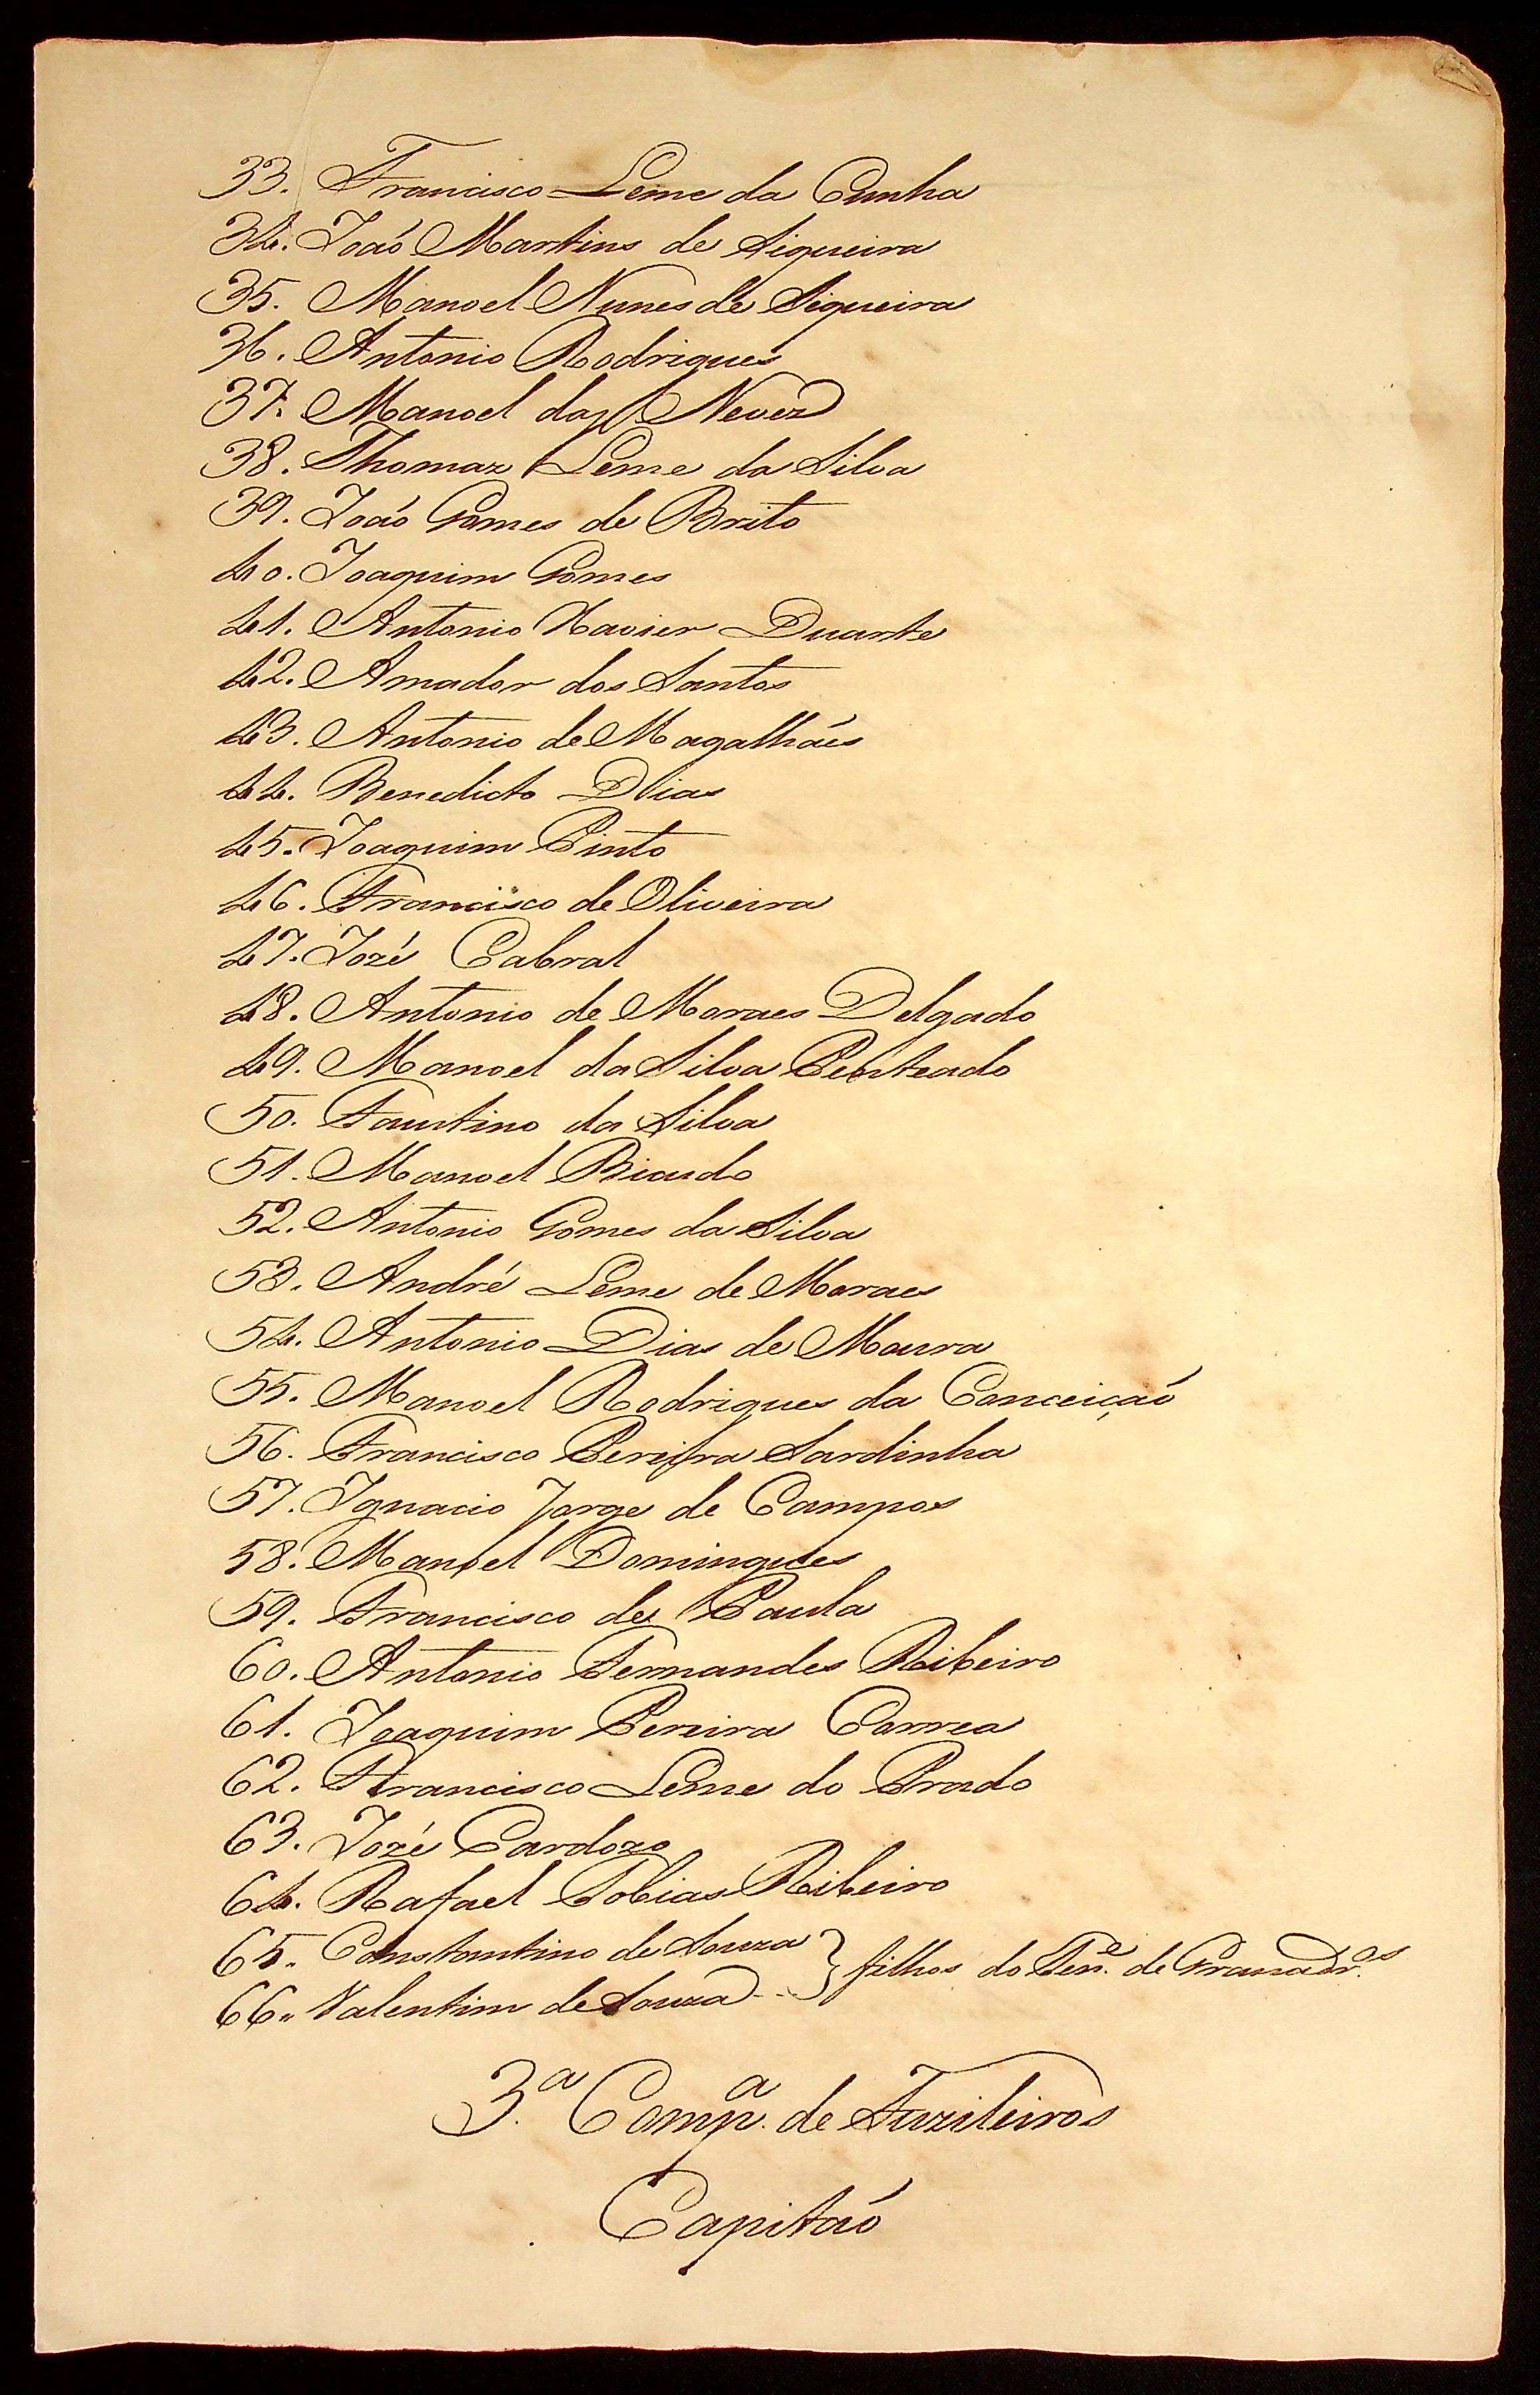 33. Francisco Leme da Cunha
34. Joaó Martins de Siqueira
35. Manoel Nunes de Siqueira
36. Antonio Rodrigues
37. Manoel das Neves
38. Thomaz Leme da Silva
39. Joaó Gomes de Brito
40. Joaquim Gomes
41. Antonio Xavier Duarte
42. Amador dos Santos
43. Antonio de Magalháes
44. Benedicto Dias
45. Joaquim Pinto
46. Francisco de Oliveira
47. Jozé Cabral
48. Antonio de Moraes Delgado
49. Manoel da Silva Penteado
50. Faustino da Silva
51. Manoel Bicudo
52. Antonio Gomes da Silva
53. André Leme de Moraes
54. Antonio Dias de Moura
55. Manoel Rodrigues da Conceiçaó
56. Francisco Pereira Sardinha
57. Ignacio Jorge de Campos
58. Manoel Domingues
59. Francisco de Paula
60. Antonio Fernandes Ribeiro
61. Joaquim Pereira Correa
62. Francisco Leme do Prado
63. Jozé Cardozo
64. Rafael Tobias Ribeiro
65. Constantino de Souza } filhos do Ten.e de Granadr.os
66. Valentim de Souza
3.a Comp.a de Fuzileiros
Capitaó